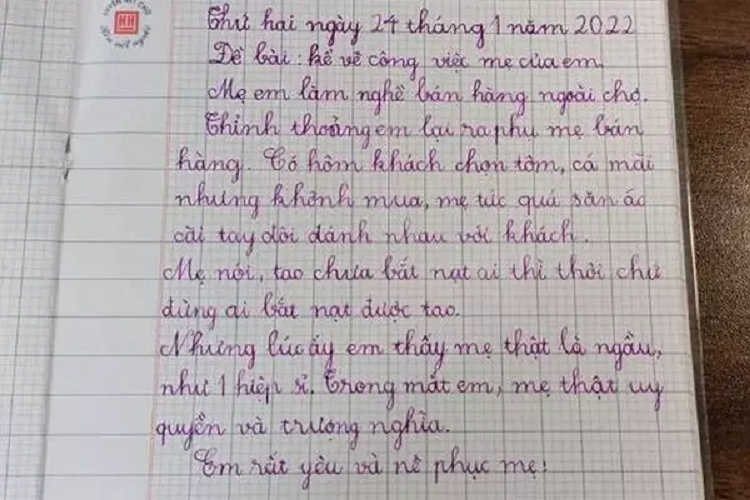 Thứ hai ngày 24 tháng 1 năm 2022
Đề bài: kể về công việc mẹ của em.
Mẹ em làm nghề bán hàng ngoài chợ.
Thỉnh thoảng em lại ra phụ mẹ bán
hàng. Có hôm khách chọn tôm, cá mãi
nhưng không mua, mẹ tức quá săn áo
cãi tay đôi đánh nhau với khách.
Mẹ nói, tao chưa bắt nạt ai thì thôi chứ
đừng ai bắt nạt được tao.
Nhưng lúc ấy em thấy mẹ thật là ngầu,
như 1 hiệp sĩ. Trong mắt em, mẹ thật uy
quyền và trượng nghĩa.
Em rất yêu và nể phục mẹ!